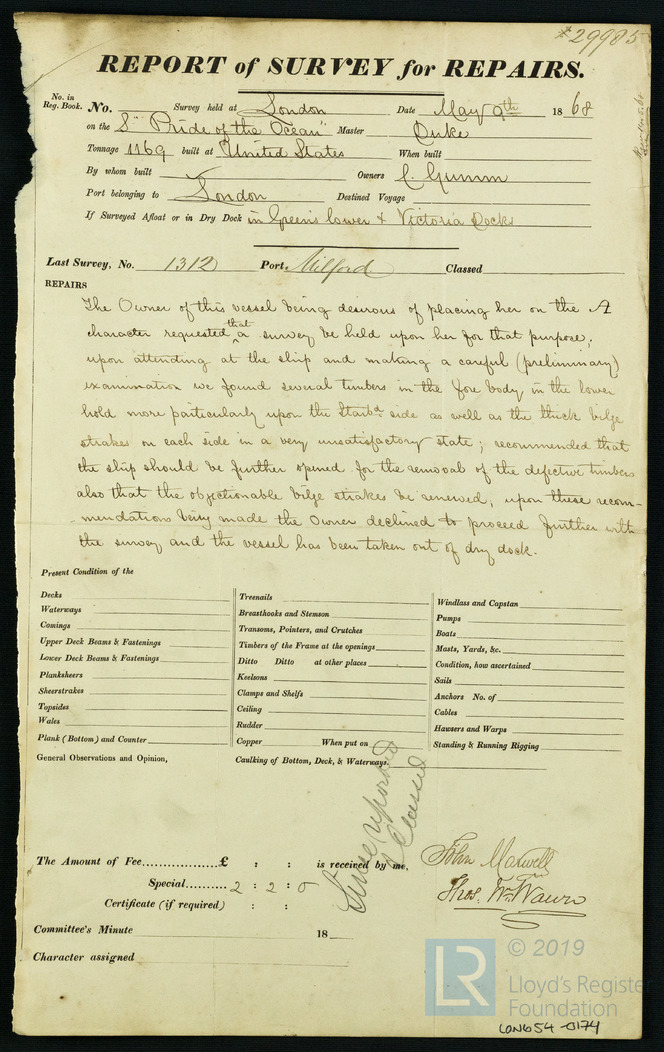 *29985
REPORT of SURVEY for REPAIRS.
No. in Reg. Book. No. Survey held at London Date May 9th 1868
on the S" "Pride of the Ocean" Master Duke
Tonnage 1169 built at United States When built
By whom built Owners C. Gumm
Port belonging to London Destined Voyage
If Surveyed Afloat or in Dry Dock in Green's lower & Victoria Dock
Last Survey, No. 1312 Port Milford Classed
REPAIRS
The Owner of this vessel being desirous of placing her on the A
character requested that a survey be held upon her for that purpose;
upon attending at the ship and making a careful (preliminary)
examination we found several timbers in the fore body in the lower
hold more particularly upon the Starbd side as well as the thick bilge
strakes on each side in a very unsatisfactory state; recommended that
the ship should be further opened for the removal of the defective timbers
also that the objectionable bilge strakes be renewed; upon these recom-
-mendations being made the Owner declined to proceed further with
the survey and the vessel has been taken out of dry dock.
Present Condition of the
Decks
Waterways
Comings
Upper Deck Beams & Fastenings
Lower Deck Beams & Fastenings
Planksheers
Sheerstrakes
Topsides
Wales
Plank (Bottom) and Counter
General Observations and Opinion,
Treenails
Breasthooks and Stemson
Transoms, Pointers, and Crutches
Timbers of the Frame at the openings
Ditto Ditto at other places
Keelsons
Clamps and Shelfs
Ceiling
Rudder
Copper When put on
Caulking of Bottom, Deck, & Waterways.
Windlass and Capstan
Pumps
Boats
Masts, Yards, &c.
Condition, how ascertained
Sails
Anchors No. of
Cables
Hawsers and Warps
Standing & Running Rigging
Since reported
& Classed
The Amount of Fee................£ : : is received by me,
Special.......... 2 : 2 : 0
Certificate (if required) : :
John Maxwell
Thos. Wm
Committee's Minute 18
Character assigned
LR
© 2019
Lloyd's Register
Foundation
LON654-0174